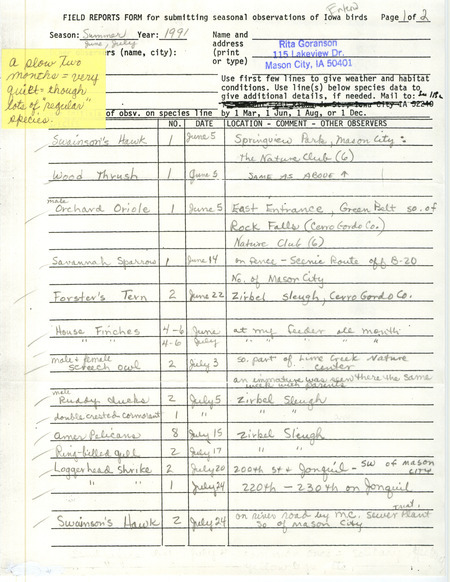 Enterd
FIELD REPORTS FORM for submitting seasonal observations of Iowa birds Page 1 of 2
Season: Summer Year: 1991
June, July
Name and
address
(print
or type)
Rita Goranson
115 Lakeview Dr.
Mason City, IA 50401
rs (name, city):
a slow two
months = very
quiet - though
lots of "regular"
species.
Use first few lines to give weather and habitat
conditions. Use line(s) below species data to
give additional details, if needed. Mail to:
of obsv. on species line by 1 Mar, 1 Jun, 1 Aug, or 1 Dec.
NO. DATE LOCATION - COMMENT - OTHER OBSERVERS
Swainson's Hawk 1 June 5 Springview Park, Mason City:
The Nature Club (6)
Wood Thrush 1 June 5 SAME AS ABOVE ↑
male
Orchard Oriole 1 June 5 East Entrance, Green Belt so. of
Rock Falls (Cerro Gordo Co.)
Nature Club (6)
Savannah Sparrow 1 June 14 on fence - Scenic Route off B-20
No. of Mason City
Forster's Tern 2 June 22 Zirbel Slough, Cerro Gordo Co.
House Finches 4-6 June at my feeder all month
" " 4-6 July " " " " "
male + female
screech owl 2 July 3 so. part of Lime Creek Nature
Center
an immature was seen there the same
week with parents
male
Ruddy ducks 2 July 5 Zirbel Slough
double crested cormorant 1 " " "
Amer Pelicans 8 July 15 Zirbel Slough
Ring-billed gull 2 July 17 " "
Loggerhead Shrike 2 July 20 200th St + Jonquil - SW of mason
city
" " 1 July 24 220th - 230th on Jonquil
Swainson's Hawk 2 July 24 on river road by M.C. sewer treat. plant
So. of mason City